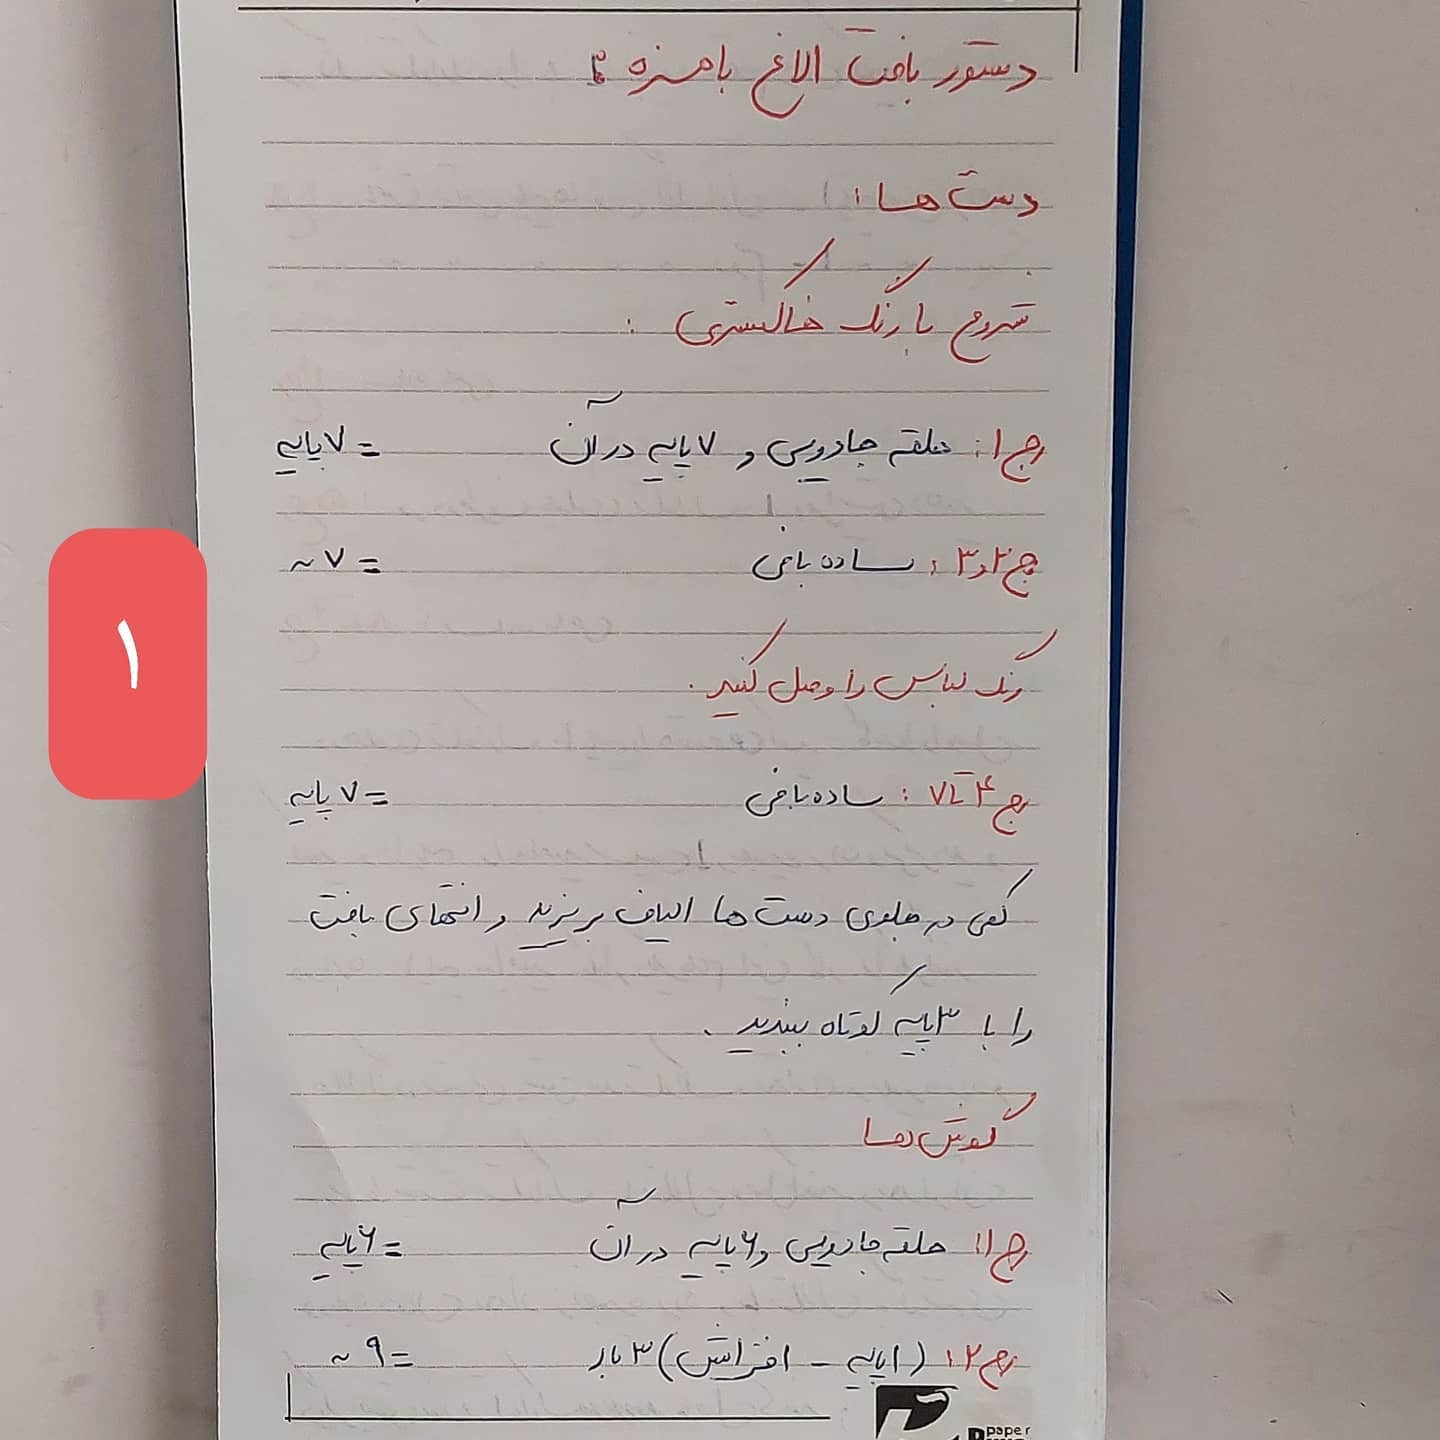 دستور بافت الاغ بامزه :
دست ها :
شروع با رنگ خاکستری :
رج ۱ : حلقه جادویی و ۷ پایه در آن = ۷ پایه
رج ۲ و ۳ : ساده بافی = ۷ ~
رنگ لباس را وصل کنید .
رج ۴ تا ۷ : ساده بافی = ۷ پایه
کمی در جلوی دست ها الیاف بریزید و انتهای بافت
را با ۳ پایه کوتاه ببندید .
گوش ها
رج ۱ : حلقه جادویی و ۶ پایه در آن = ۶ پایه
رج ۲ : ( ۱ پایه - افزایش ) ۳ بار = ۹ ~
۱
paper